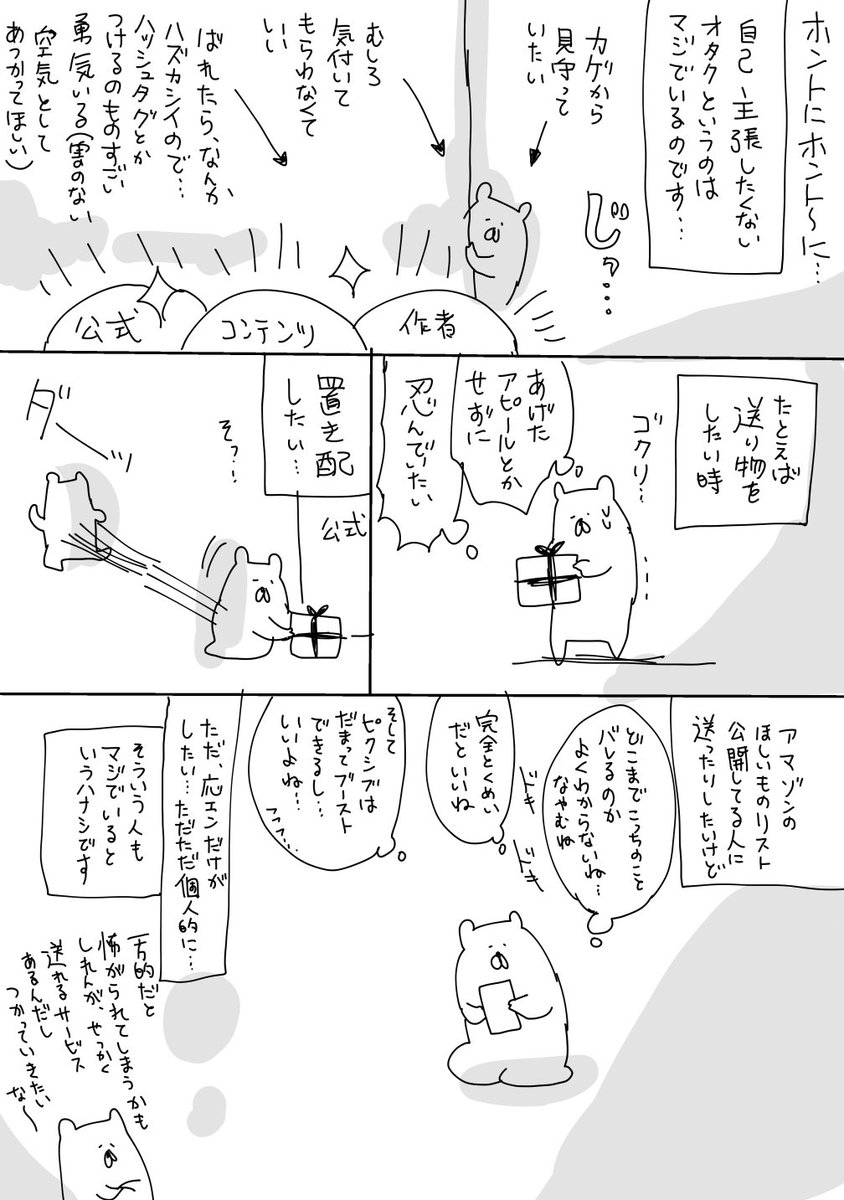 ホントにホント〜に…
自己主張したくない
オタクというのは
マジでいるのです…
じーっ…
カゲから
見守って
いたい
むしろ
気付いて
もらわなくて
いい
ばれたら、なんか
ハズカシイので…
ハッシュタグとか
つけるのものすごい
勇気いる(害のない
空気として
あつかってほしい)
作者
コンテンツ
公式
たとえば
送り物を
したい時
ゴクリ…
あげた
アピールとか
せずに
忍んでいたい
置き配
したい…
公式
そっ…
ダーッ
アマゾンの
ほしいものリスト
公開してる人に
送ったりしたいけど
どこまでこっちのこと
バレるのか
よくわからないね…
なやむね
ドキ
ドキ
完全とくめい
だといいね
そして
ピクシブは
だまってブースト
できるし…
いいよね…
フフフ…
ただ、応エンだけが
したい…ただただ個人的に…
そういう人も
マジでいると
いうハナシです
一方的だと
怖がられてしまうかも
しれんが、せっかく
送れるサービス
あるんだし
つかっていきたい
な〜